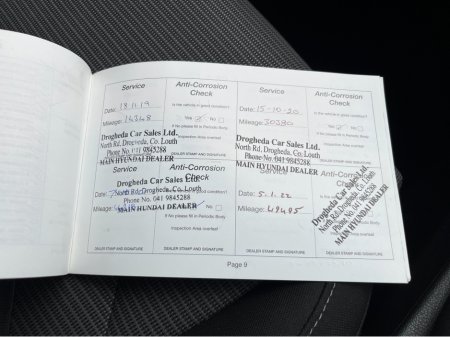 Service
Anti-Corrosion
Check
Date: 18.11.19
Is the vehicle in good condition?
Yes No
Mileage: 14348
If No please fill in Periodic Body
Drogheda Car Sales Ltd.
North Rd, Drogheda, Co. Louth
Phone No. 041 9845288
MAIN HYUNDAI DEALER
Service
Anti-Corrosion
Check
Date: 15-10-20
Is the vehicle in good condition?
Yes No
Mileage: 30380
If No please fill in Periodic Body
Inspection Area overleaf
Drogheda Car Sales Ltd.
North Rd, Drogheda, Co. Louth
Phone No. 041 9845288
MAIN HYUNDAI DEALER
DEALER STAMP AND SIGNATURE
Service
Anti-Corrosion
Date:
Mileage:
Drogheda Car Sales Ltd.
North Rd, Drogheda, Co. Louth
Phone No. 041 9845288
MAIN HYUNDAI DEALER
No
If No please fill in Periodic Body
Inspection Area overleaf
DEALER STAMP AND SIGNATURE
Service
Date: 5.1.22
Mileage: 49495
Drogheda Car Sales Ltd.
North Rd, Drogheda, Co. Louth
Phone No. 041 9845288
MAIN HYUNDAI DEALER
DEALER STAMP AND SIGNATURE
Page 9